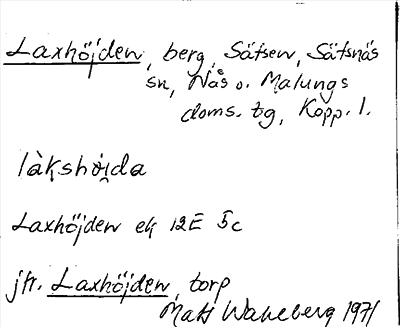 Laxhöjden, berg, Sätsen, Sätsnäs
sn, Nås o. Malungs
doms. tg, Kopp. l.
làkshöi̯da
Laxhöjden ek 12E 5c
jfr. Laxhöjden, torp
Mats Wahlberg 1971